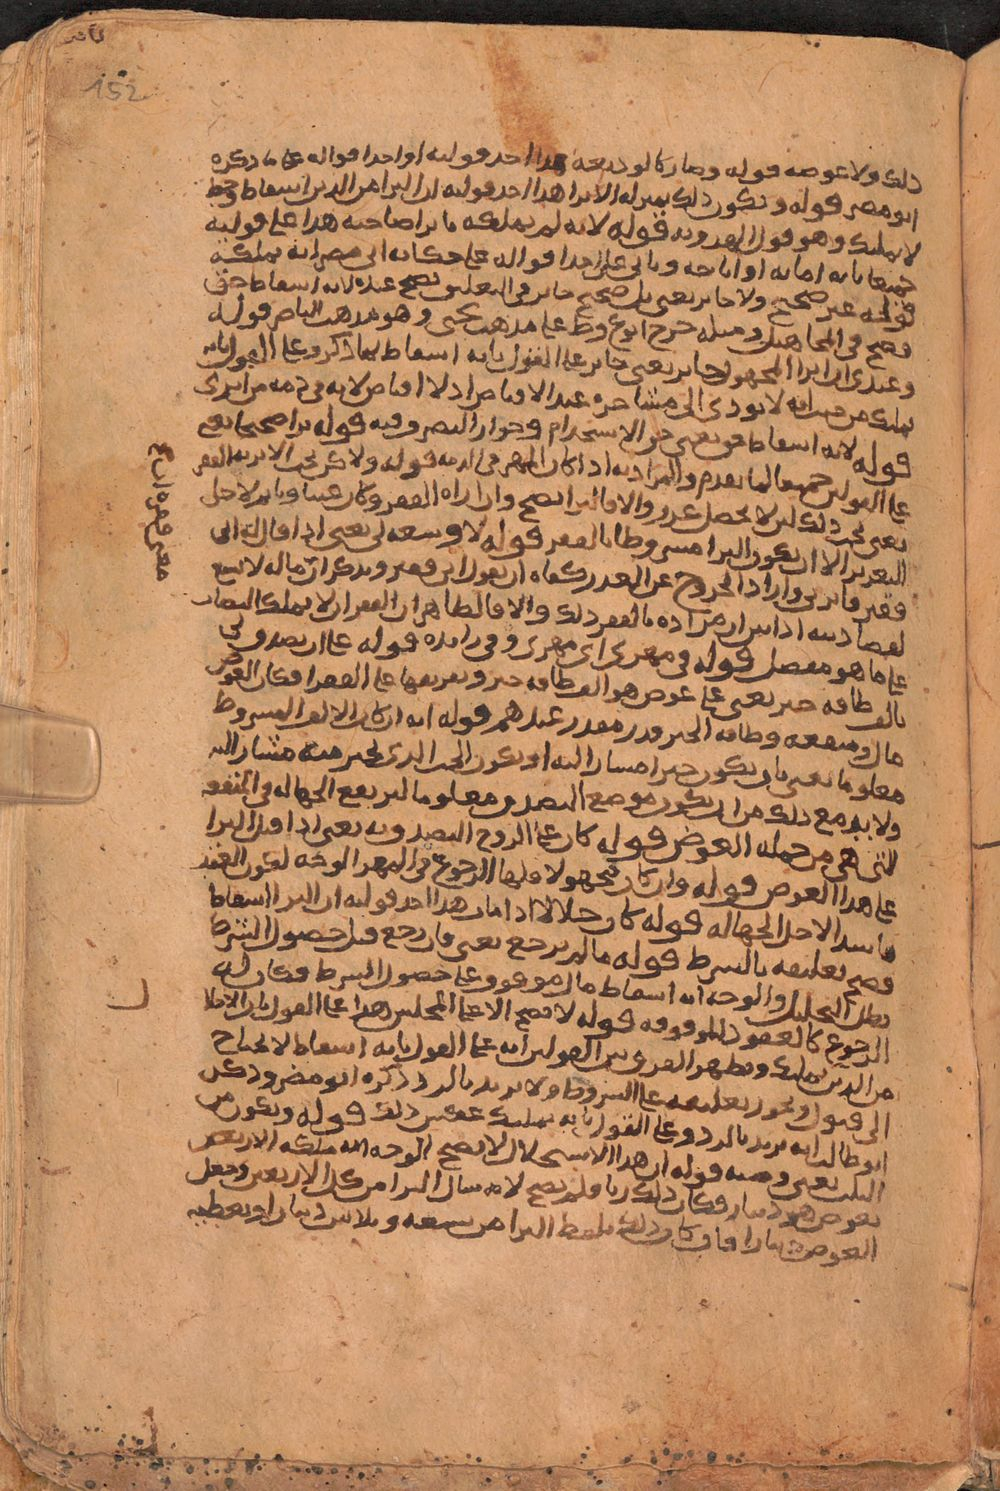 152
ذلك ولا عوضه قوله وصار كالوديعة هذا احد قوليه او احد اقواله على ما ذكره
ابو مضر قوله ويكون ذلك بمنزلة الابرا هذا احد قوليه ان البرا من الدين اسقاط وحط
لا تمليك وهو قول الهدوية قوله لانه لم يملكه ما برا صاحبه هذا على قوليه
جميعا بانه امانه او اباحه وياتى على احد اقواله على حكايه ابى مضر انه يملكه
قوله غير صحيح ولا جايز يعنى بل صحيح جايز فى التعليق يصح عنده لانه اسقاط حق
فصح فى المجاهيل ومثله خرج ابو ع وط على مذهب يحيى وهو مذهب الناصر قوله
وعندى ان ابرا المجهول جايز يعنى جايز على القول بانه اسقاط لما ذكر وعلى القول بانه
تمليك من حيث انه لا يودى الى مشاجره عند الاقباض اذ لا اقباض لانه فى ذمه من ابرى
قوله لانه اسقاط حق يعنى حق الاستخدام وجواز التصرف فيه قوله برا صحيحا يعنى
على القولين جميعا لما تقدم والمراد به اذا كان المهر فى الذمه قوله ولا كن يجب الابرية الفقر
يعنى يجب ذلك لئلا يحصل غدر والا فالبرا يصح وان اراه الفقر وكان غنيا ويابر لاجل
التغرير الا ان يكون البرا مشروطا بالفقر قوله لا وسعه لى يعنى اذا قال انى
فقير فابرينى واراد الخروج عن الغدر كفاه ان يقول انى فقير ويذكر ان ماله لا يتسع
لقضا دينه اذ ليس ان مراده بالفقر ذلك والا فالظاهر ان الفقر ان لا يملك النصاب
على ما هو مفصل قوله فى مهرى اى مهرى وفى زايده قوله على ان تصدق لى
بالف طاقه خبز يعنى على عوض هو الف طاقه خبز وتفريقها على الفقرا فكان العوض
مال ومنفعه وطاقه الخبز قدر مقدر عندهم قوله انه ان كان الالف المشروط
معلوما يعنى بان يكون خبزا مشارا اليه او يكون الحب الذى يخبز منه مشار اليه
ولا بد مع ذلك من ان يكون موضع التصدق معلوما ليرتفع الجهاله فى المنفعه
التى هى من جمله العوض قوله كان على الزوج التصدق به يعنى اذا قبل البرا
على هذا العوض قوله وان كان مجهولا فلها الرجوع فى المهر الوجه لكون العقد
فاسد لاجل الجهاله قوله كان حلالا اذا مات هذا احد قوليه ان البرا اسقاط
فصح تعليقه بالشرط قوله ما لم يرجع يعنى فان رجع قبل حصول الشرط
بطل التحليل والوجه انه اسقاط مال موقوف على حصول الشرط فكان له
الرجوع كالعقود الموقوفه قوله لا يصح الا على المجلس هذا على القول بان الابرا
من الدين تمليك ويظهر الفرق بين القولين انه على القول بانه اسقاط لا يحتاج
الى قبول ويجوز تعليقه على الشروط ولا يرتد بالرد ذكره ابو مضر وذكر
ابو طالب انه يرتد بالرد وعلى القول بانه تمليك عكس ذلك قوله ويكون من
الثلث يعنى وصيه قوله ان هذا الاستحلال لا يصح الوجه انه ملكه الاربعين
بعوض هو دينار فكان ذلك ربا فلم يصح لانه سال البرا من كل الاربعين وجعل
العوض دينارا فان كان ذلك بلفظ البرا من تسعه وثلاثين دينارا ويعطيه